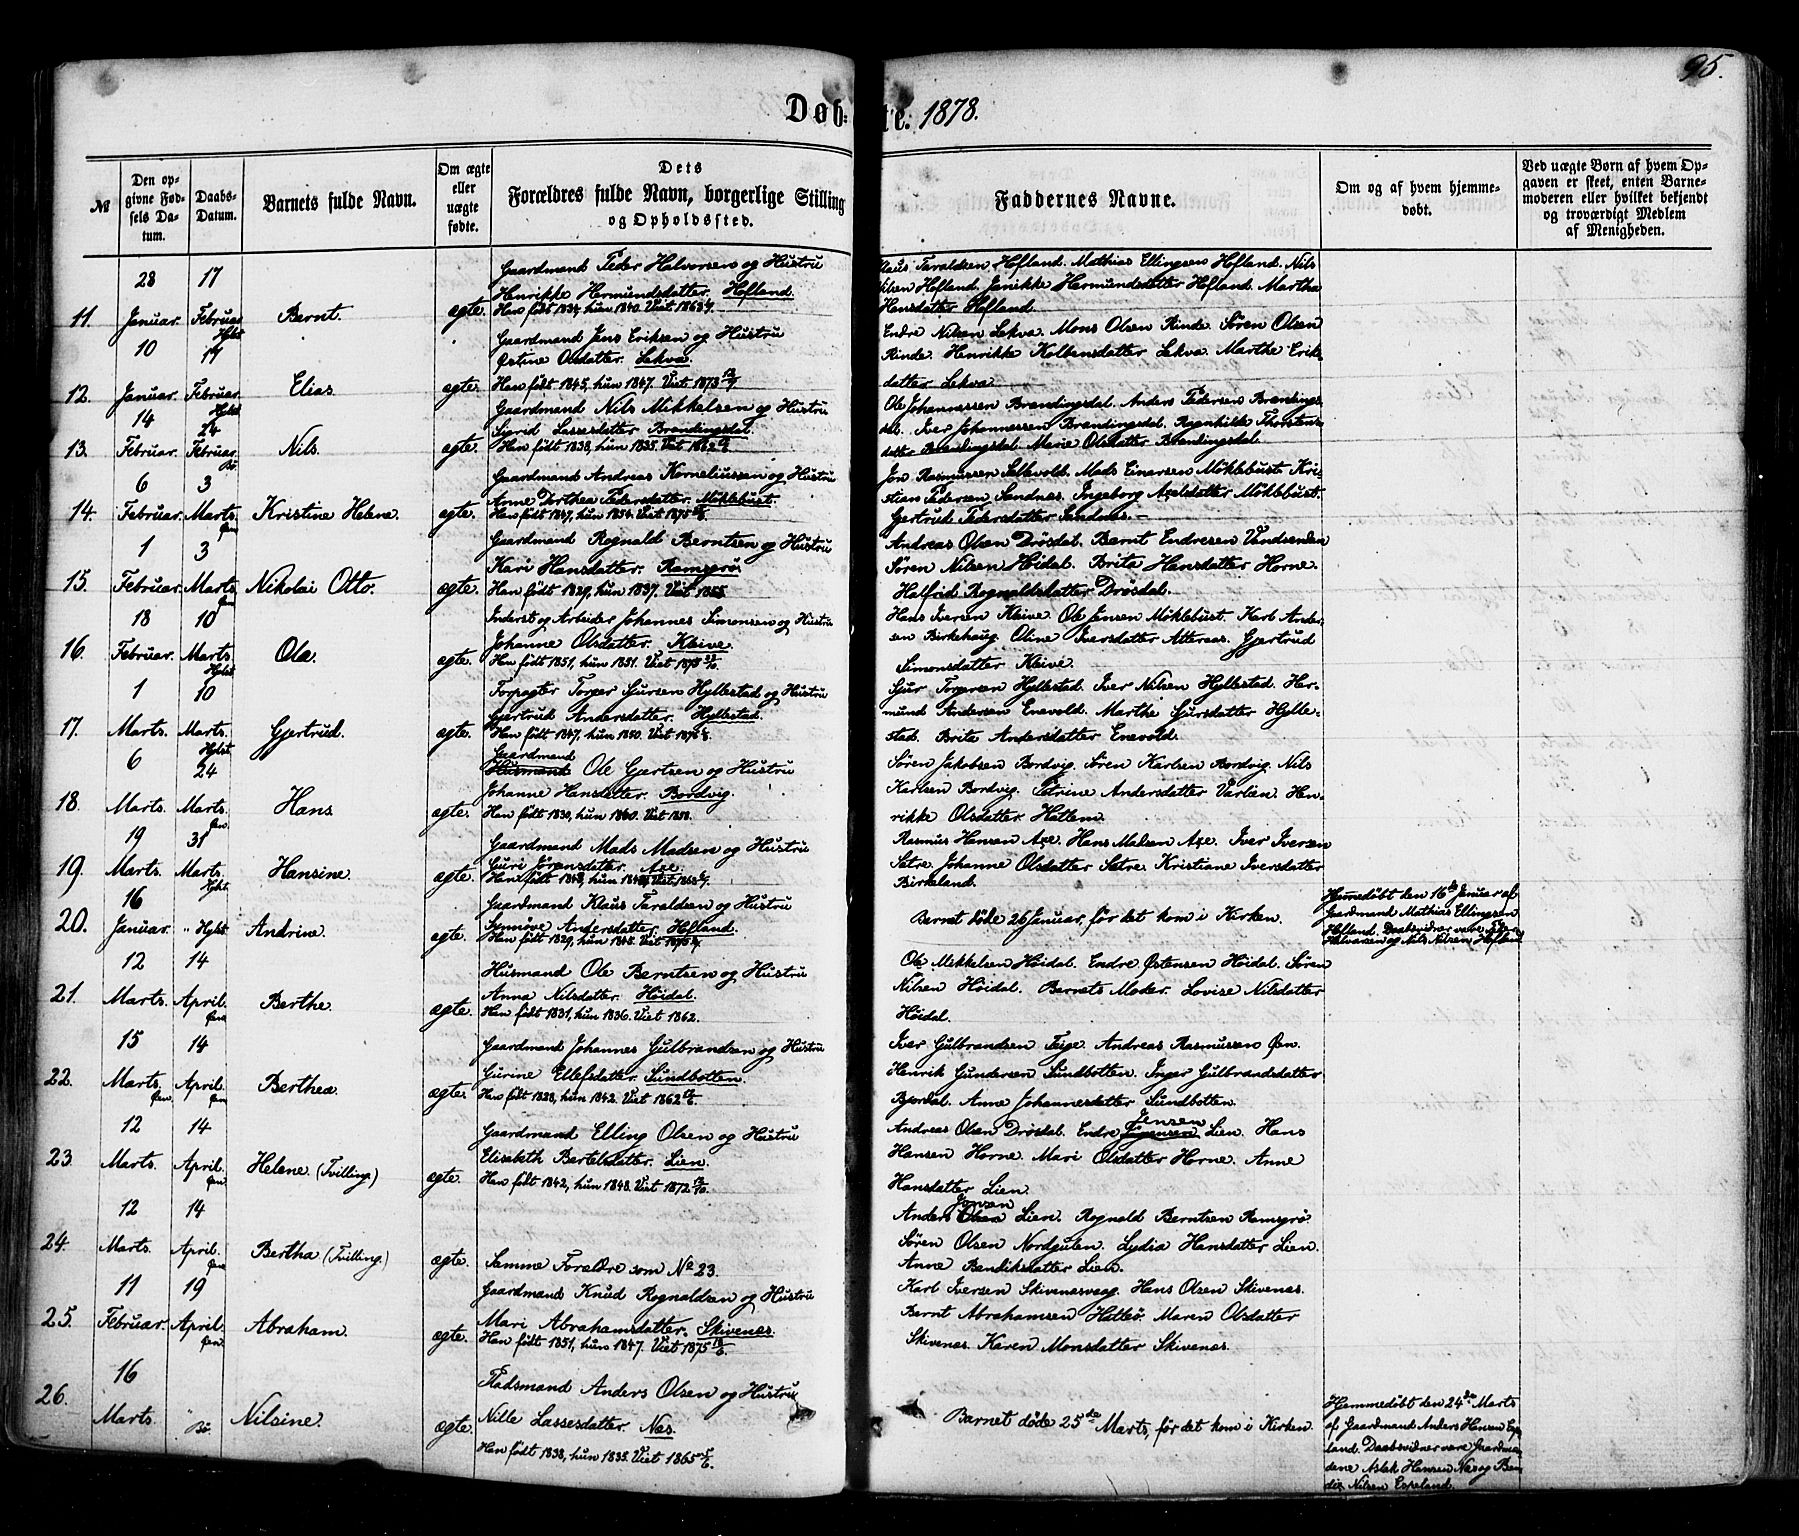 95.
Døb-te. 1878.
№ | Den opgivne Fødsels Datum. | Daabs-Datum. | Barnets fulde Navn. | Om ægte eller uægte fødte. | Dets Forældres fulde Navn, borgerlige Stilling og Opholdssted. | Faddernes Navne. | Om og af hvem hjemmedøbt. | Ved uægte Børn af hvem Opgaven er skeet, enten Barnemoderen eller hvilket bekjendt og troværdigt Medlem af Menigheden.
11. 28 Januar. 17 Februar. Hylst. Bernt. ægte.
Gaardmand Peder Halvorsen og Hustru
Henrikke Hermundsdatter. Hofland.
Han født 1834, hun 1840. Viet 1863
Klaus Taraldsen Hofland. Mathias Ellingsen Hofland. Nils
Nilsen Hofland. Janikke Hermundsdatter Hofland. Martha
Hansdatter Hofland.
12. 10 Januar. 17 Februar. Hylst. Elias. ægte.
Gaardmand Jens Eriksen og Hustru
Østine Olsdatter. Lekva.
Han født 1845, hun 1847. Viet 1873
Endre Nilsen Lekva. Mons Olsen Rinde. Søren Olsen
Rinde. Henrikke Kolbensdatter Lekva. Marthe Eriks-
datter Lekva.
13. 14 Februar. 24 Februar. Bø. Nils. ægte.
Gaardmand Nils Mikkelsen og Hustru
Sigrid Lassesdatter Brandingsdal.
Han født 1838, hun 1835. Viet 1862
Ole Johannessen Brandingsdal. Anders Pedersen Brandings-
dal. Iver Johannessen Brandingsdal. Ragnhilde Thorstens-
datter Brandingsdal. Marie Olsdatter Brandingsdal.
14. 6 Februar. 3 Marts. Øen. Kristine Helene. ægte.
Gaardmand Andreas Korneliussen og Hustru
Anne Dorthea Pedersdatter. Möklebust.
Han født 1847, hun 1854. Viet 1875
Jon Rasmussen Sellevold. Mads Einarsen Möklebust. Kri-
stian Pedersen Sandnes. Ingeborg Axelsdatter Möklebust.
Gjertrude Pedersdatter Sandnes.
15. 1 Februar. 3 Marts. Øen. Nikolai Otto. ægte.
Gaardmand Rognald Berntsen og Hustru
Kari Hansdatter. Ramsgrö.
Han født 1829, hun 1837. Viet 1855
Andreas Olsen Drösdal. Bernt Endresen Vandsenden
Søren Nilsen Höidal. Brita Hansdatter Horne.
Halfrid Rognaldsdatter Drösdal.
16. 18 Februar. 10 Marts. Hylst. Ole. ægte.
Inderst og Arbeider Johannes Simonsen og Hustru
Johanne Olsdatter. Kleive.
Han født 1851, hun 1851. Viet 1873
Hans Iversen Kleive. Ole Jensen Möklebust. Karl Ander-
sen Birkehaug. Oline Iversdatter Atteraas. Gjertrud
Simonsdatter Kleive.
17. 1 Marts. 10 Marts. Hylst. Gjertrud. ægte.
Forpagter Torger Sjursen Hyllestad og Hustru
Gjertrud Andersdatter. Hyllestad.
Han født 1847, hun 1850. Viet 1876
Sjur Torgersen Hyllestad. Iver Nilsen Hyllestad. Her-
mund Andersen Enevold. Marthe Sjursdatter Hylle-
stad. Brita Andersdatter Enevold.
18. 6 Marts. 24 Marts. Øen. Hans. ægte.
Gaardmand
Husmand Ole Gjertsen og Hustru
Johanne Hansdatter. Bordvig.
Han født 1830, hun 1840. Viet 1858.
Søren Jakobsen Bordvig. Søren Karlsen Bordvig. Nils
Karlsen Bordvig. Petrine Andersdatter Varlien. Hen-
rikke Olsdatter Hatlem.
19. 19 Marts. 31 Marts. Hylst. Hansine. ægte.
Gaardmand Mads Madsen og Hustru
Guri Jörensdatter. Axe.
Rasmus Hansen Axe. Hans Madsen Axe. Iver Iversen
Sætre. Johanne Olsdatter Sætre. Kristiane Iversdatter
Birkeland.
20. 16 Januar. " Hylst. Andrine. ægte.
Gaardmand Klaus Taraldsen og Hustru
Synnøve Andersdatter. Hofland.
Han født 1829, hun 1845. Viet 1875
Barnet døde 26 Januar, før det kom i Kirken.
Hjemmedøbt den 16de Januar af
Gaardmand Mathias Ellingsen
Hofland. Daabsvidner vare Peder
Halvorsen og Nils Nilsen Hofland
21. 12 Marts. 14 April. Øen. Berthe. ægte.
Husmand Ole Berntsen og Hustru
Anna Nilsdatter. Höidal.
Han født 1831, hun 1836. Viet 1862.
Ole Mikkelsen Höidal. Endre Østensen Höidal. Søren
Nilsen Höidal. Barnets Moder. Lovise Nilsdatter
Höidal.
22. 15 Marts. Øen. 14 April. Øen. Berthea. ægte.
Gaardmand Johannes Gulbrandsen og Hustru
Gurine Ellefsdatter. Sundbotten.
Han født 1828, hun 1842. Viet 1862
Iver Gulbrandsen Teige. Andreas Rasmussen Øen.
Henrik Gundersen Sundbotten. Inger Gulbrandsdatter
Bjordal. Anne Johannesdatter Sundbotten.
23. 12 Marts. 14 April. Øen. Helene (Tvilling.) ægte.
Gaardmand Elling Olsen og Hustru
Elisabeth Bertelsdatter. Lien.
Han født 1842, hun 1848. Viet 1872
Jensen
Andreas Olsen Drösdal. Endre Lien. Hans
Hansen Horne. Mari Olsdatter Horne. Anne
Hansdatter Lien.
24. 12 Marts. 14 April. Øen. Bertha (Tvilling.) ægte.
Samme Forældre som No 23.
Jonsen
Anders Olsen Lien. Rognald Berntsen Ramsgrö.
Søren Olsen Nordgulen. Lydia Hansdatter Lien.
Anne Bendiksdatter Lien.
25. 11 Februar. 19 April. Øen. Abraham. ægte.
Gaardmand Knud Rognaldsen og Hustru
Mari Abrahamsdatter. Skivenes.
Han født 1851, hun 1847. Viet 1875
Karl Iversen Skivenesvaag. Hans Olsen Skivenes.
Bernt Abrahamsen Hatleö. Maren Olsdatter
Skivenes. Karen Monsdatter Skivenes.
26. 16 Marts. " Bø. Nilsine. ægte.
Pladsmand Anders Olsen og Hustru
Nille Lassesdatter. Nes.
Han født 1838, hun 1835. Viet 1865
Barnet døde 25de Marts, før det kom i Kirken.
Hjemmedøbt den 24de Marts
af Gaardmand Anders Hansen Espe-
land. Daabsvidner vare Gaardmæn-
dene Aslak Hansen Nes og Ben-
dix Nilsen Espeland.